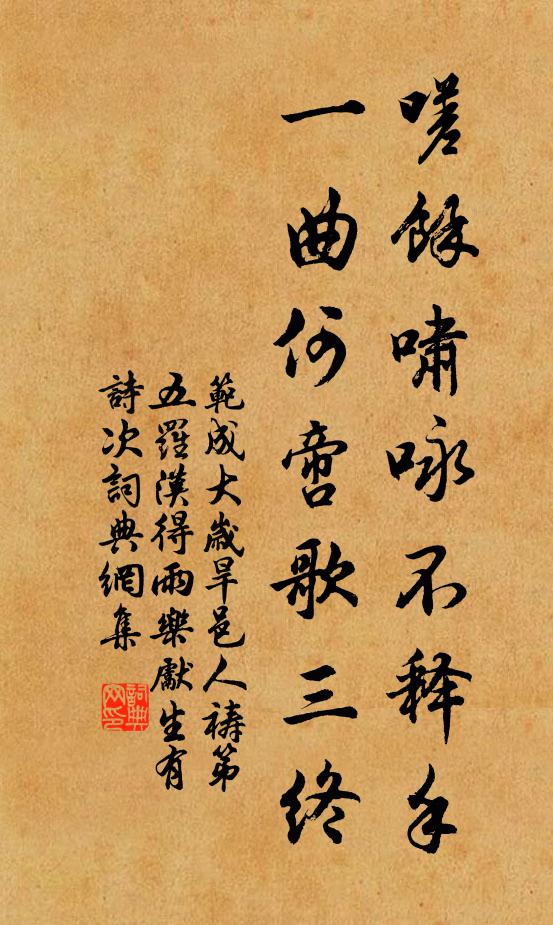 嗟餘嘯咏不释手
一曲何啻歌三终
範成大歲旱邑人禱第
五羅漢得雨樂獻生有
詩次詞典網集
詞典
网印